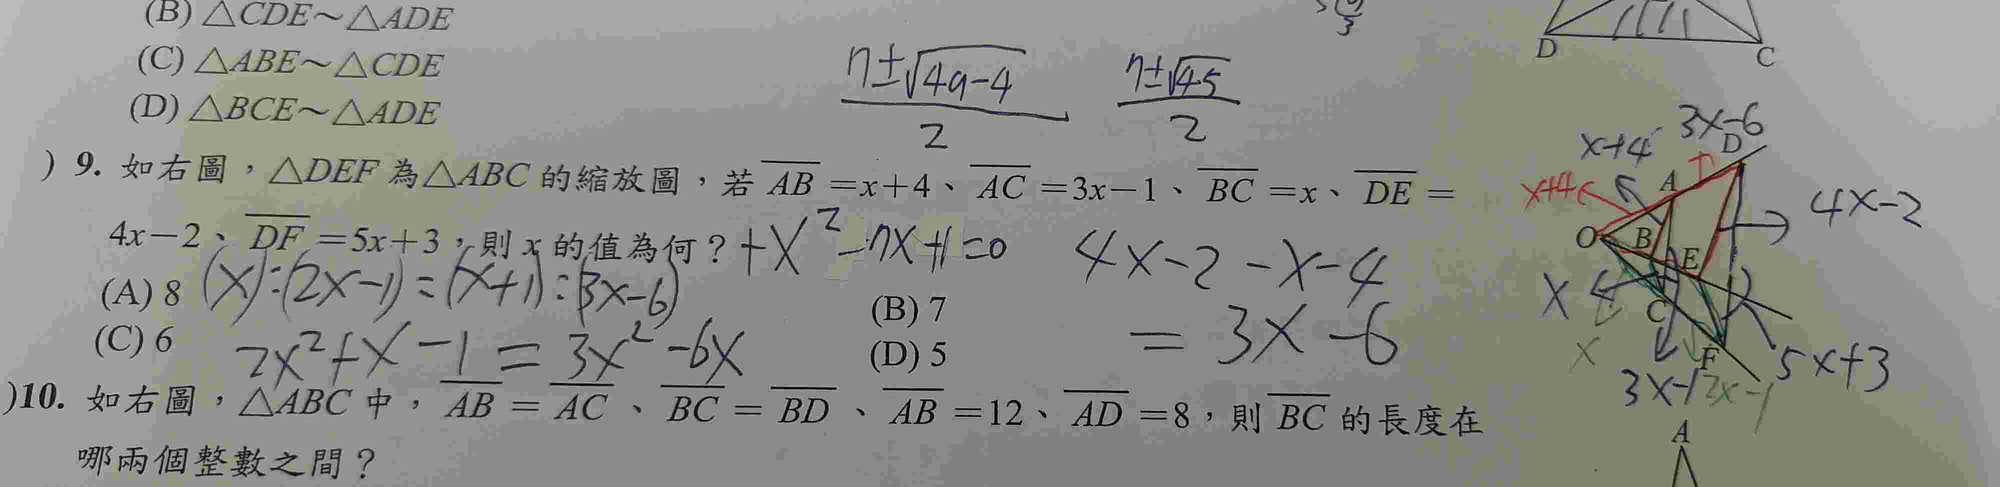 (B) △CDE～△ADE
(C) △ABE～△CDE
(D) △BCE～△ADE
D C
7±√49-4 / 2  7±√45 / 2
) 9. 如右圖，△DEF 為△ABC 的縮放圖，若 AB =x+4、AC =3x-1、BC =x、DE =
4x-2、DF =5x+3，則 x 的值為何？ +x²-7x+1=0
(A) 8 (x):(2x-1)=(x+1):(3x-6)
4x-2-x-4
(B) 7
(C) 6 2x²+x-1=3x²-6x
=3x-6
(D) 5
3x-6
x+4 D
x+4 A 4x-2
O B E
x C
x F 5x+3
3x-1 2x-1
)10. 如右圖，△ABC 中，AB = AC、BC = BD、AB =12、AD =8，則 BC 的長度在
哪兩個整數之間？
A